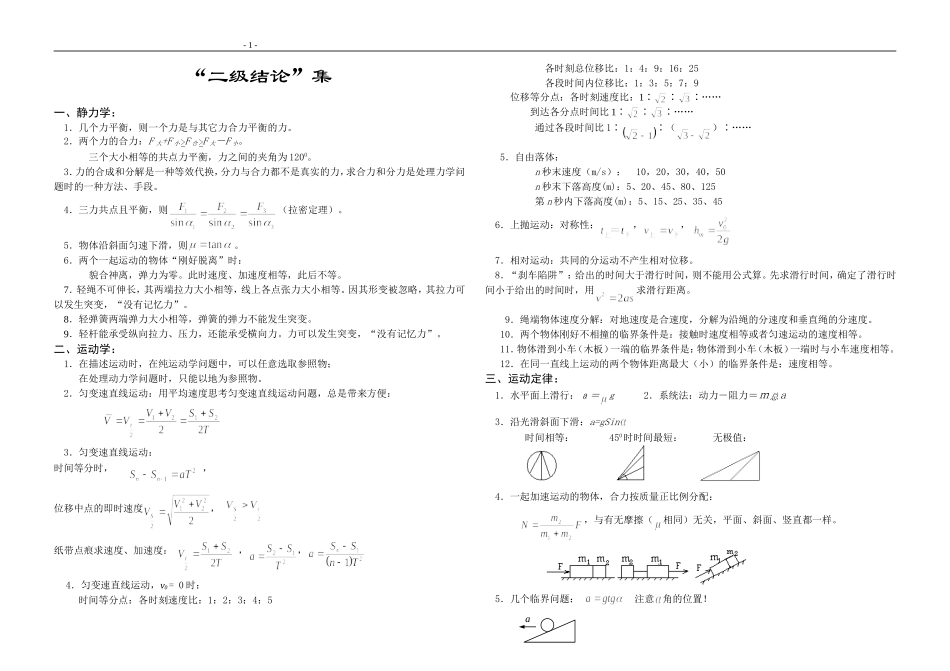 - 1 -
“二级结论”集
一、静力学：
1．几个力平衡，则一个力是与其它力合力平衡的力。
2．两个力的合力：F大+F小≥F合≥F大－F小。
三个大小相等的共点力平衡，力之间的夹角为120⁰。
3.力的合成和分解是一种等效代换，分力与合力都不是真实的力，求合力和分力是处理力学问
题时的一种方法、手段。
4．三力共点且平衡，则 F₁/sin α₁ = F₂/sin α₂ = F₃/sin α₃ （拉密定理）。
5．物体沿斜面匀速下滑，则 μ = tan α 。
6．两个一起运动的物体“刚好脱离”时：
貌合神离，弹力为零。此时速度、加速度相等，此后不等。
7．轻绳不可伸长，其两端拉力大小相等，线上各点张力大小相等。因其形变被忽略，其拉力可
以发生突变，“没有记忆力”。
8．轻弹簧两端弹力大小相等，弹簧的弹力不能发生突变。
9．轻杆能承受纵向拉力、压力，还能承受横向力。力可以发生突变，“没有记忆力”。
二、运动学：
1．在描述运动时，在纯运动学问题中，可以任意选取参照物；
在处理动力学问题时，只能以地为参照物。
2．匀变速直线运动：用平均速度思考匀变速直线运动问题，总是带来方便：
V̄ = V_(t/2) = (V₁ + V₂)/2 = (S₁ + S₂)/2T
3．匀变速直线运动：
时间等分时， Sₙ − Sₙ₋₁ = aT² ，
位移中点的即时速度 V_(S/2) = √((V₁² + V₂²)/2) ， V_(S/2) > V_(t/2)
纸带点痕求速度、加速度： V_(t/2) = (S₁ + S₂)/2T ， a = (S₂ − S₁)/T² ， a = (Sₙ − S₁)/((n − 1)T²)
4．匀变速直线运动，v₀ = 0时：
时间等分点：各时刻速度比：1：2：3：4：5
各时刻总位移比：1：4：9：16：25
各段时间内位移比：1：3：5：7：9
位移等分点：各时刻速度比：1：√2：√3：……
到达各分点时间比1：√2：√3：……
通过各段时间比1：(√2 − 1)：（√3 − √2）：……
5．自由落体：
n秒末速度（m/s）： 10，20，30，40，50
n秒末下落高度(m)：5、20、45、80、125
第n秒内下落高度(m)：5、15、25、35、45
6．上抛运动：对称性：t上 = t下 ，v上 = v下 ， hₘ = v₀²/2g
7．相对运动：共同的分运动不产生相对位移。
8．“刹车陷阱”：给出的时间大于滑行时间，则不能用公式算。先求滑行时间，确定了滑行时
间小于给出的时间时，用 v² = 2as 求滑行距离。
9．绳端物体速度分解：对地速度是合速度，分解为沿绳的分速度和垂直绳的分速度。
10．两个物体刚好不相撞的临界条件是：接触时速度相等或者匀速运动的速度相等。
11．物体滑到小车（木板）一端的临界条件是：物体滑到小车（木板）一端时与小车速度相等。
12．在同一直线上运动的两个物体距离最大（小）的临界条件是：速度相等。
三、运动定律：
1．水平面上滑行：a＝μg 2．系统法：动力－阻力＝m总a
3．沿光滑斜面下滑：a=gSinα
时间相等： 45⁰时时间最短： 无极值：
4．一起加速运动的物体，合力按质量正比例分配：
N = m₂/(m₁ + m₂) F ，与有无摩擦（μ相同）无关，平面、斜面、竖直都一样。
F m₁ m₂ m₁ m₂ F F m₁ m₂
5．几个临界问题： a = gtgα 注意α角的位置！
a